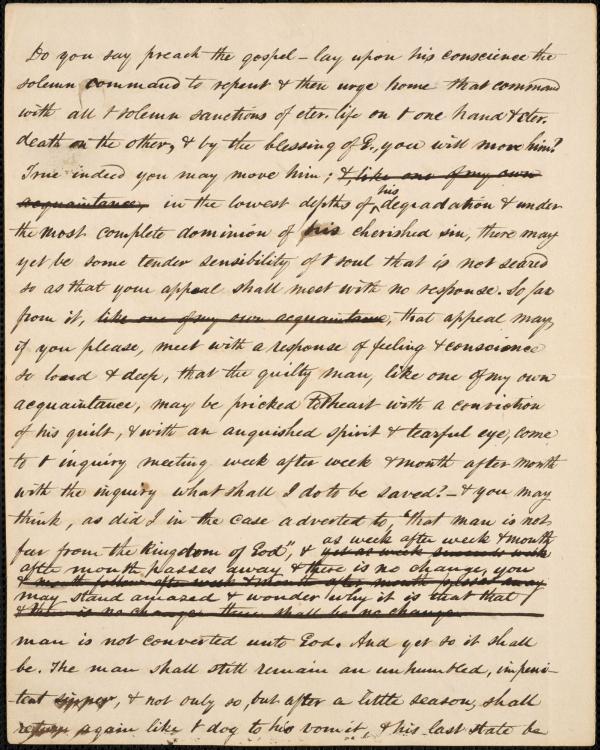 Do you say preach the gospel – lay upon his conscience the
solemn command to repent & then urge home that command
with all t solemn sanctions of eter. life on t one hand & eter.
death on the other, & by the blessing of G., you will move him?
True indeed you may move him; &, like one of my own
acquaintance, in the lowest depths of his degradation & under
the most complete dominion of his cherished sin, there may
yet be some tender sensibility of t soul that is not seared
so as that your appeal shall meet with no response. So far
from it, like one of my own acquaintance, that appeal may,
if you please, meet with a response of feeling & conscience
so loud & deep, that the guilty man, like one of my own
acquaintance, may be pricked to heart with a conviction
of his guilt, & with an anguished spirit & tearful eye, come
to t inquiry meeting week after week & month after month
with the inquiry what shall I do to be saved? – & you may
think, as did I in the case adverted to, "that man is not
far from the kingdom of God", & yet as week succeeds week
as week after week & month
after month passes away & there is no change, you
& month follow after week & month after month passes away
may stand amazed & wonder why it is that that
& there is no change there shall be no change
man is not converted unto God. And yet so it shall
be. The man shall still remain an unhumbled, impeni-
tent sinner, & not only so, but after a little season, shall
return again like t dog to his vomit, & his last state be